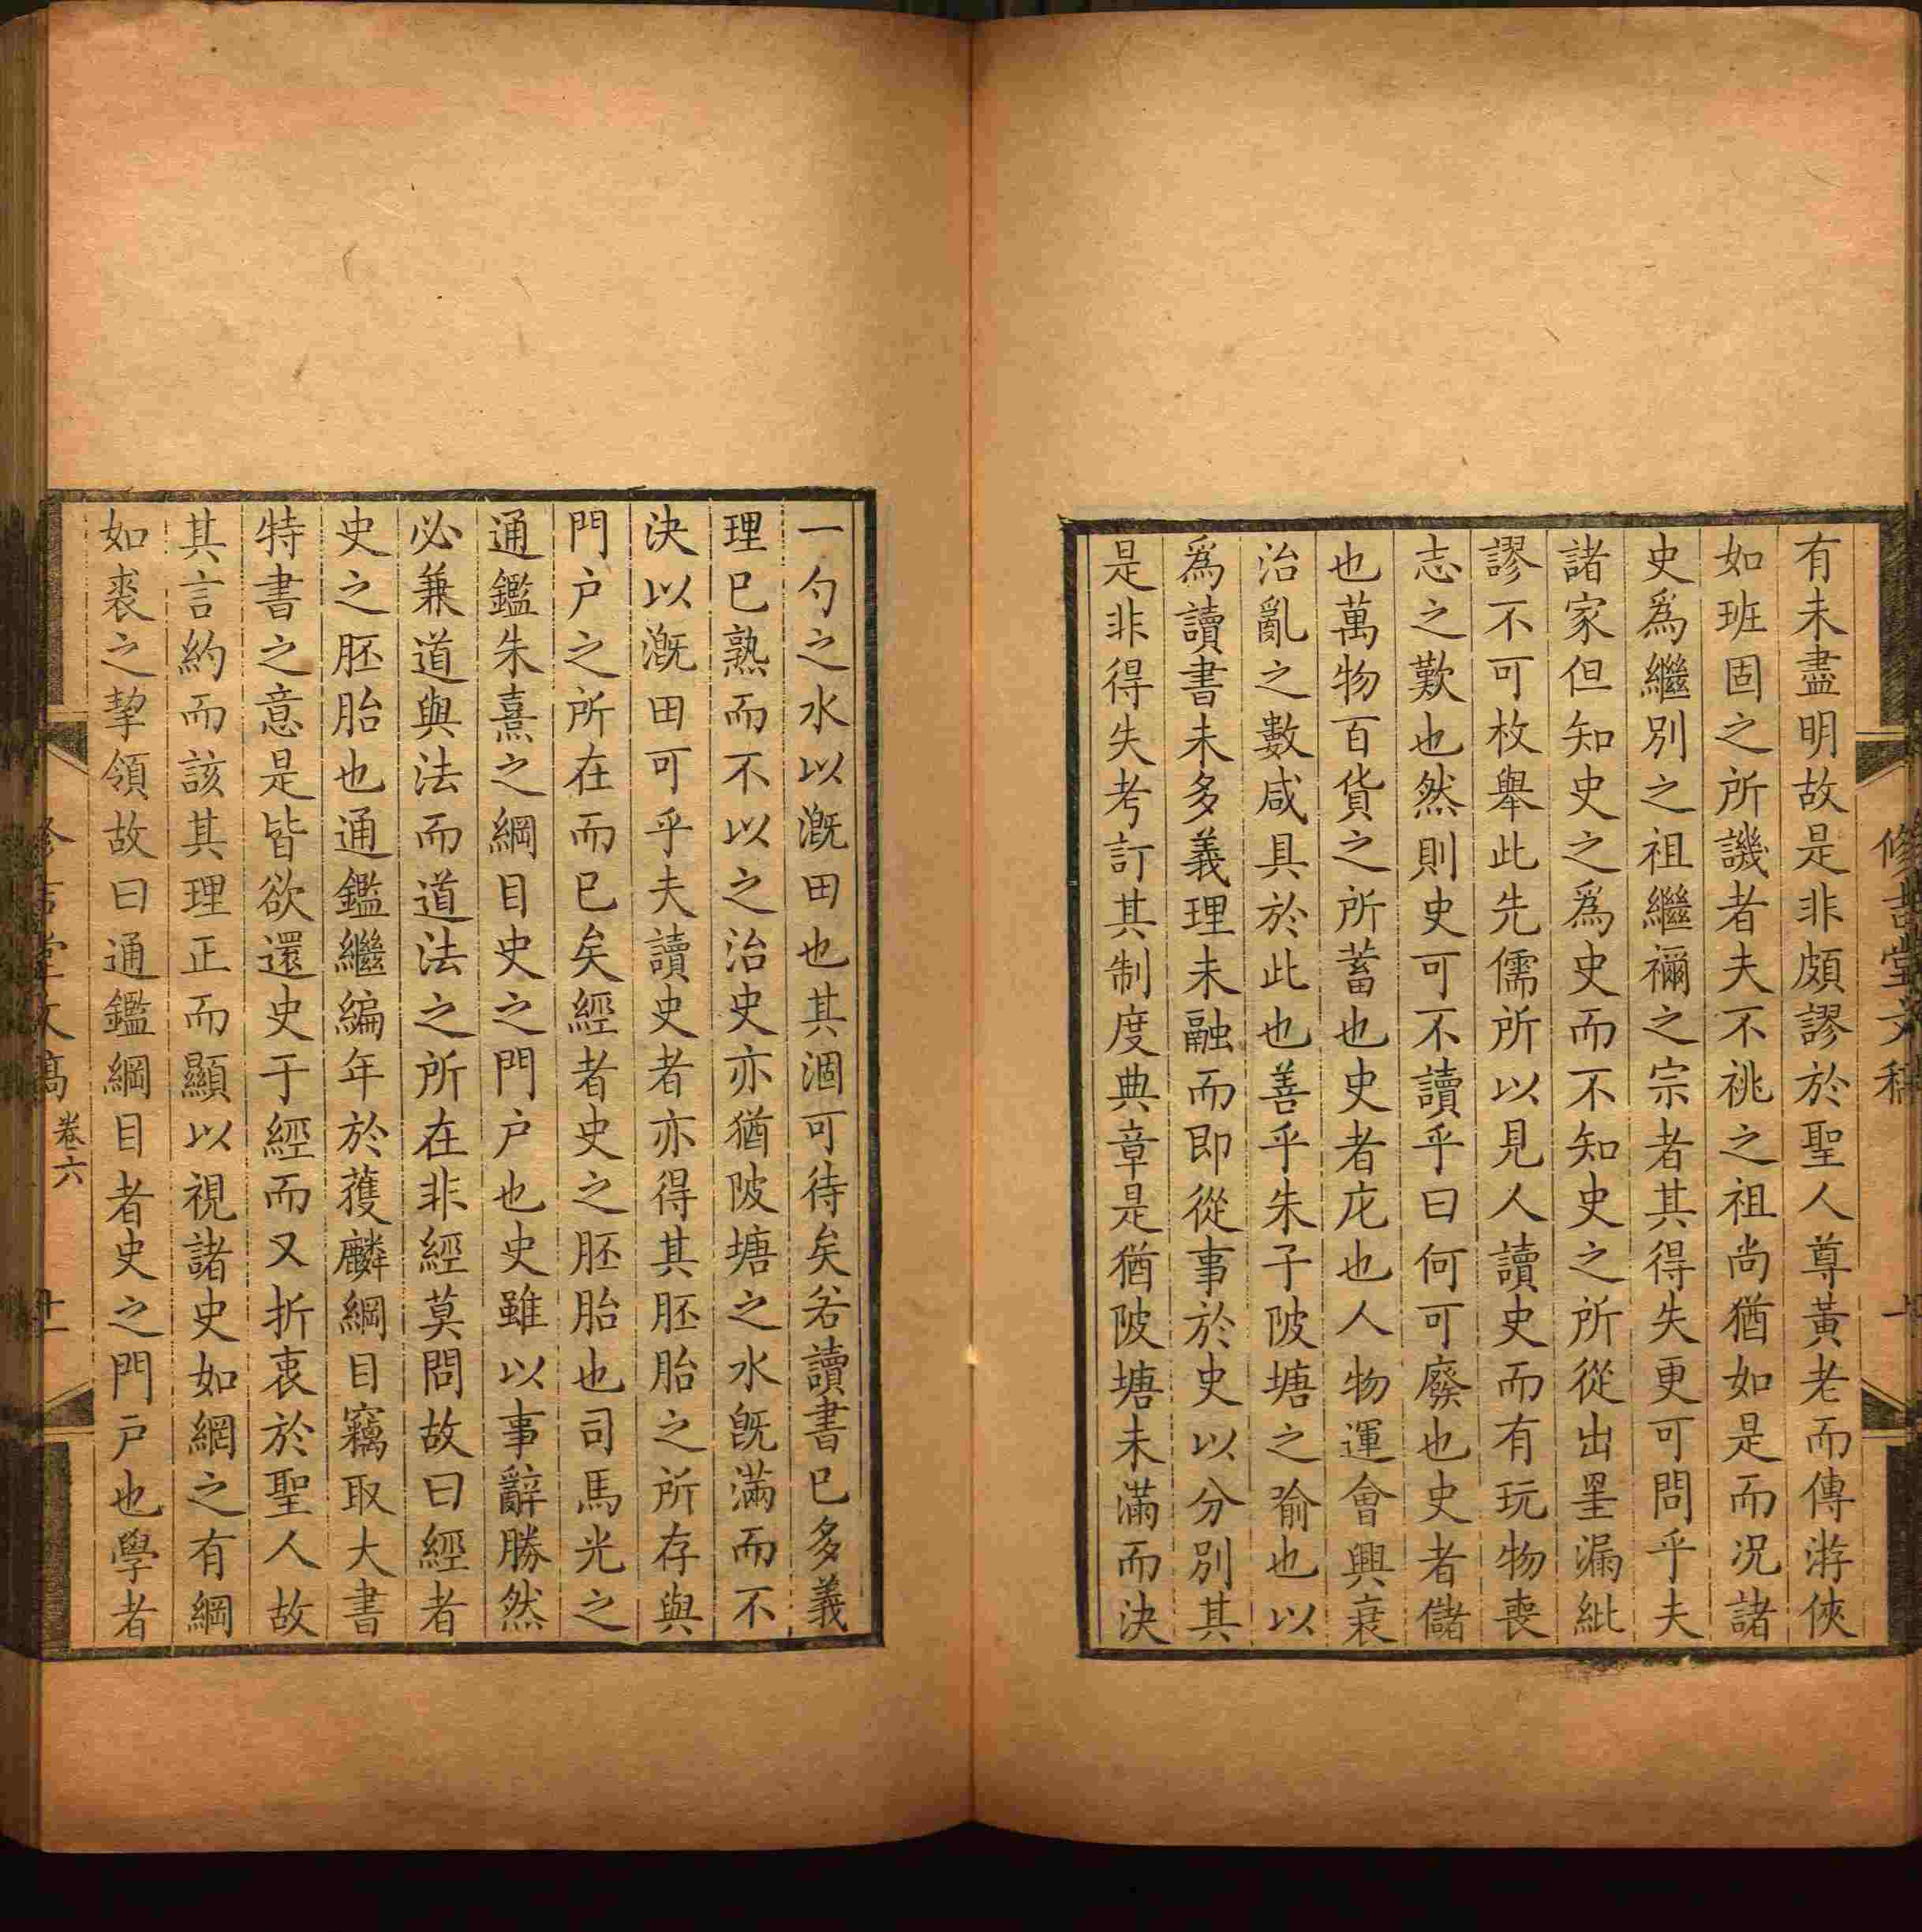 有未盡明故是非頗謬於聖人尊黃老而傳游俠
如班固之所譏者夫不祧之祖尚猶如是而况諸
史爲繼別之祖繼禰之宗者其得失更可問乎夫
諸家但知史之爲史而不知史之所從出罣漏紕
謬不可枚舉此先儒所以見人讀史而有玩物喪
志之歎也然則史可不讀乎曰何可廢也史者儲
也萬物百貨之所蓄也史者庀也人物運會興衰
治亂之數咸具於此也善乎朱子陂塘之喻也以
爲讀書未多義理未融而即從事於史以分別其
是非得失考訂其制度典章是猶陂塘未滿而決
一勺之水以漑田也其涸可待矣若讀書已多義
理已熟而不以之治史亦猶陂塘之水旣滿而不
決以漑田可乎夫讀史者亦得其胚胎之所存與
門户之所在而已矣經者史之胚胎也司馬光之
通鑑朱熹之綱目史之門户也史雖以事辭勝然
必兼道與法而道法之所在非經莫問故曰經者
史之胚胎也通鑑繼編年於獲麟綱目竊取大書
特書之意是皆欲還史于經而又折衷於聖人故
其言約而該其理正而顯以視諸史如網之有綱
如裘之挈領故曰通鑑綱目者史之門戸也學者
卷六
十一